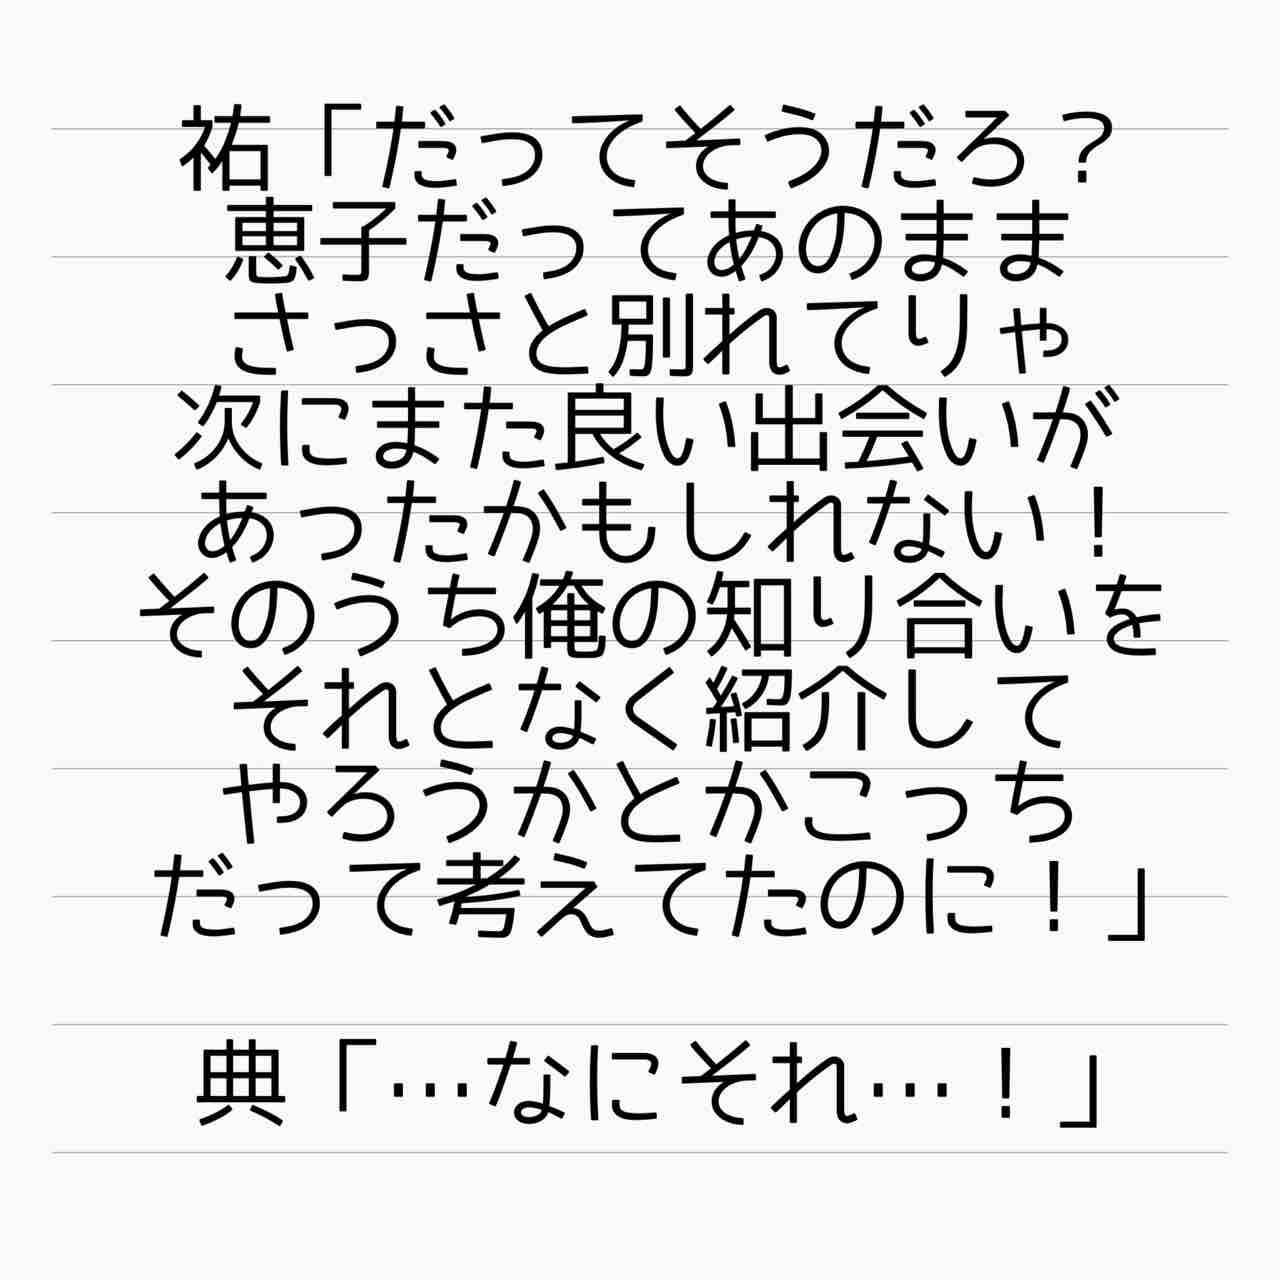 祐「だってそうだろ？
恵子だってあのまま
さっさと別れてりゃ
次にまた良い出会いが
あったかもしれない！
そのうち俺の知り合いを
それとなく紹介して
やろうかとかこっち
だって考えてたのに！」
典「…なにそれ…！」